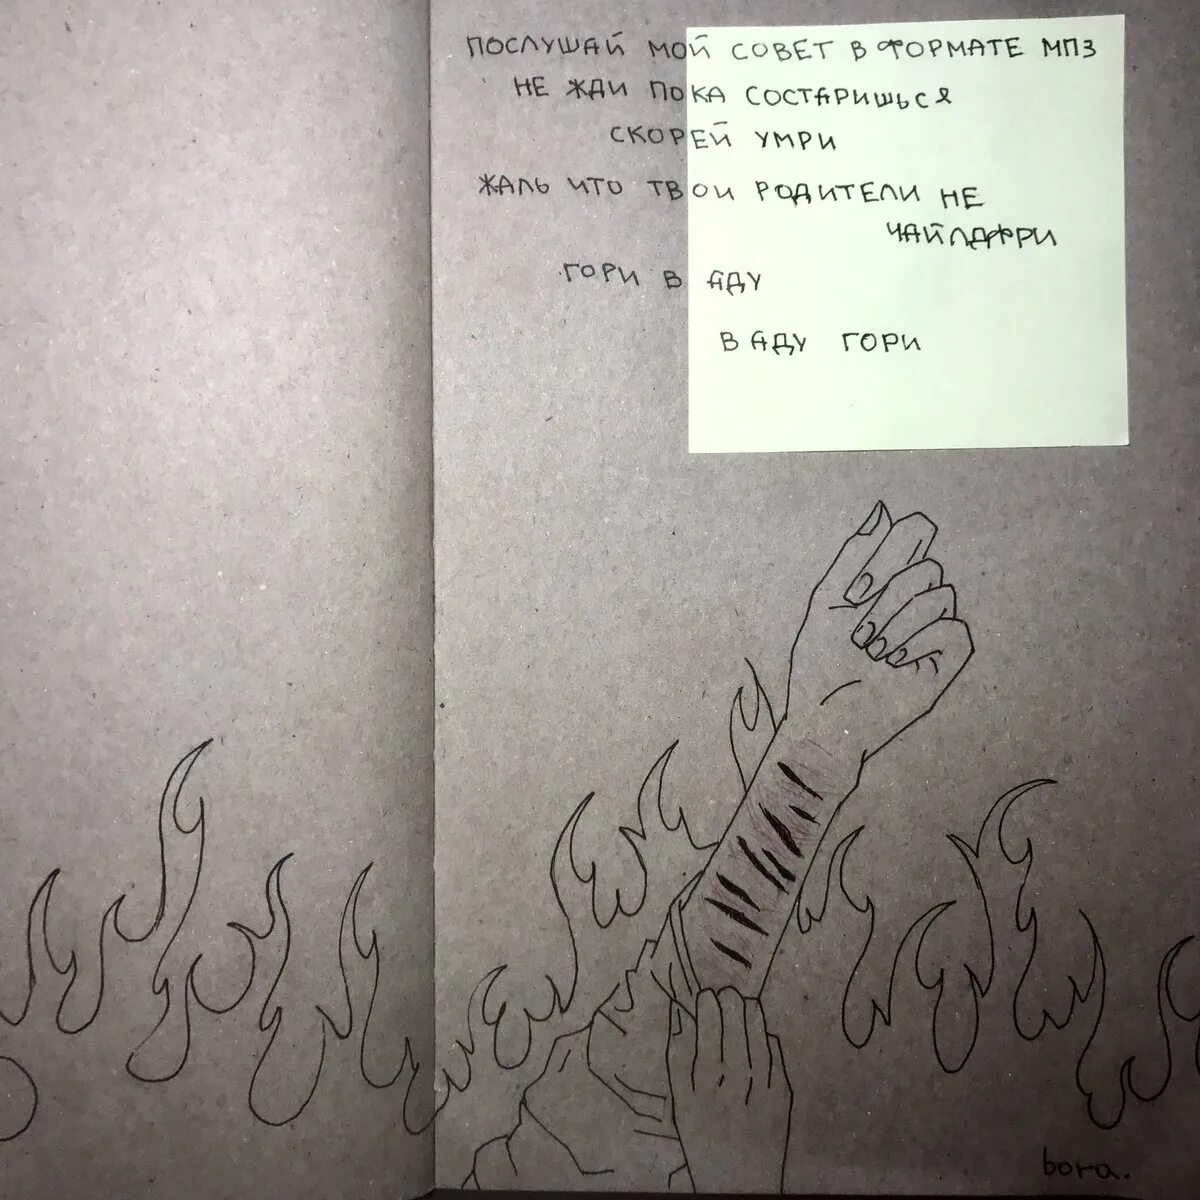 ПОСЛУШАЙ МОЙ СОВЕТ В ФОРМАТЕ МПЗ
НЕ ЖДИ ПОКА СОСТАРИШЬСЯ
СКОРЕЙ УМРИ
ЖАЛЬ ЧТО ТВОИ РОДИТЕЛИ НЕ
ЧАЙЛДФРИ
ГОРИ В АДУ
В АДУ ГОРИ
bora.